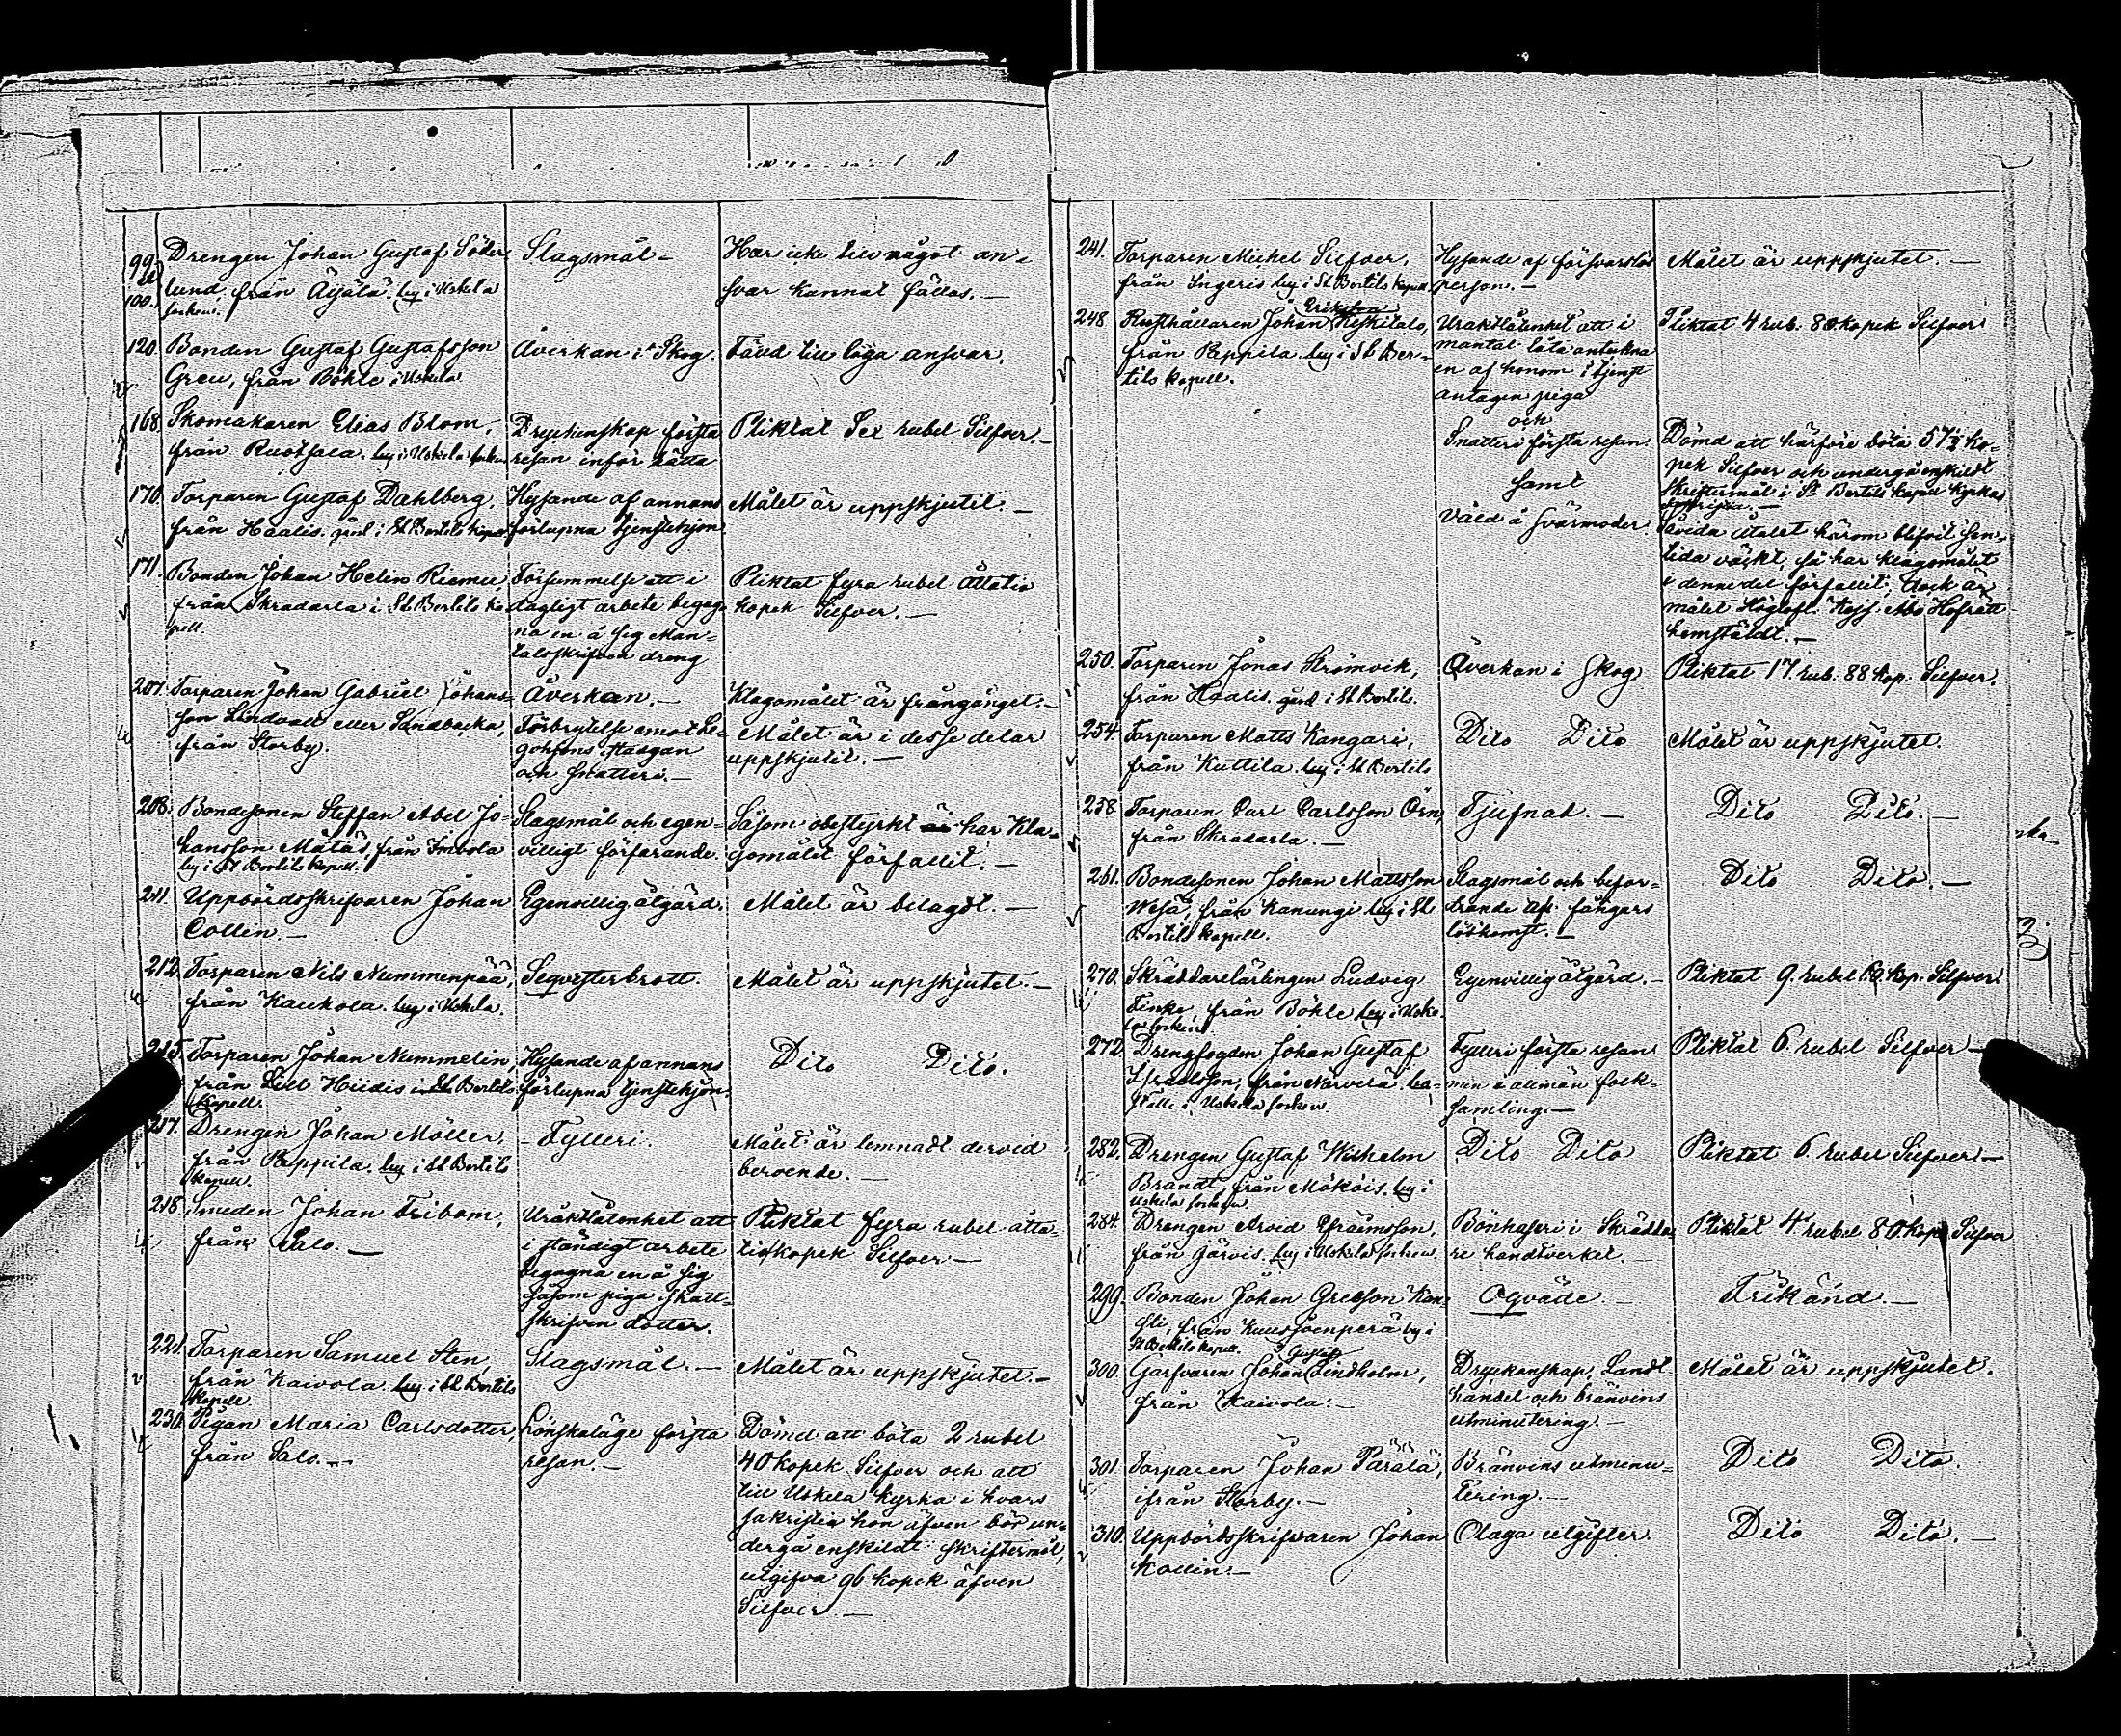 99 et 100. Drengen Johan Gustaf Söder- Slagsmål- Har icke till något an-
lund, från Äijälä by i Uskela svar kunnat fällas.-
socken.
120. Bonden Gustaf Gustafsson Åverkan i Skog. Fäld till laga ansvar.
Green, från Böhle i Uskela
168. Skomakaren Elias Blom, Dryckenskap första Pliktat Sex rubel Silfver.-
från Ruotsala by i Uskela socken resan inför rätta
170. Torparen Gustaf Dahlberg, Hysande af annans Målet är uppskjutet.-
från Haalis gård i St Bertils kapell förlupna tjenstehjon.
171. Bonden Johan Helin Riemu, Försummelse att i Pliktat fyra rubel åttatio
från Skradarla i St Bertils ka- dagligt arbete begag- kopek Silfver.-
pell. na en å sig Man-
talsskrifven dreng
207. Torparen Johan Gabriel Johans- Åverkan.- Klagomålet är frångånget.-
son Lindvall eller Sandbacka, Förbrytelse emot Le- Målet är i desse delar
från Storby. gohjons stadgan uppskjutit.-
och snatteri.-
208. Bondesonen Steffan Abel Jo- Slagsmål och egen- Såsom obestyrkt är har Kla-
hansson Mätäs, från Inkola villigt förfarande. gomålet förfallit.-
by i St Bertils kapell.
211. Uppbördsskrifvaren Johan Egenvillig åtgärd. Målet är bilagdt.-
Collin.-
212. Torparen Nils Nummenpää, Seqvesterbrott. Målet är uppskjutet.-
från Kaukola by i Uskela.
215. Torparen Johan Nummelin, Hysande af annans Dito Dito.
från Lill Hiidis i St Bertils förlupna tjenstehjon.
kapell.
217. Drengen Johan Möller, Fylleri. Målet är lemnadt dervid
från Reppila by i St Bertils beroende.-
kapell.
218. Smeden Johan Fribom, Uraktlåtenhet att Pliktat fyra rubel åtta-
från Salo.- i ständigt arbete tio kopek Silfver-
begagna en å sig
såsom piga skatt-
skrifven dotter.
221. Torparen Samuel Sten, Slagsmål.- Målet är uppskjutet.-
från Kaivola by i St Bertils
kapell
230. Pigan Maria Carlsdotter, Lönskaläge första Dömd att böta 2 rubel
från Salo.- resan.- 40 kopek Silfver och att
till Uskela kyrka i hvars
sakristia hon äfven bör un-
dergå enskildt skriftermål,
utgifva 96 kopek äfven
Silfver.-
241. Torparen Michel Silfver, Hysande af försvarslös Målet är uppskjutet.-
från Ingeris by i St Bertils kapell. person.-
Eriksson
248 Rusthållaren Johan Keskitalo, Uraktlåtenhet att i Pliktat 4 rub. 80 kopek Silfver
från Reppila by i St Ber- mantal låta anteckna
tils kapell. en af honom i tjenst
antagen piga
och
Snatteri första resan. Dömd att härföre böta 57½ ko-
pek Silfver och undergå enskildt
samt skriftermål i St Bertils kapell kyrkas
sakristia.-
Våld å svärmoder. Såvida åtalet härom blifvit sen-
tida väckt, så har klagomålet
i denne del förfallit; Dock är
målet Höglofl. Kejs. Åbo Hofrätt
hemstäldt.-
250. Torparen Jonas Strömvik, Åverkan i Skog Pliktat 17 rub. 88 kop. Silfver.
från Haalis gård i St Bertils.
254. Torparen Matts Kangari, Dito Dito Målet är uppskjutet.
från Kuttila by i St Bertils
258. Torparen Carl Carlsson Örn, Tjufnad.- Dito Dito.-
från Skradarla.-
261. Bondesonen Johan Mattsson Slagsmål och befor- Dito Dito.-
Wesa, från Kanungi by i St drande af fångars
Bertils kapell. löskomst.-
270. Skräddarelärlingen Ludvig Egenvillig åtgärd.- Pliktat 9 rubel 60 kop. Silfver.
Finke, från Böhle by i Uske-
la socken
272. Drengfogden Johan Gustaf Fylleri första resan Pliktat 6 rubel Silfver-
Israelsson, från Närvelä bo- men i allmän folk-
ställe i Uskela socken samling.-
282. Drengen Gustaf Wilhelm Dito Dito Pliktat 6 rubel Silfver-
Brandt, från Mökois by i
Uskela socken
284. Drengen Arvid Efraimsson, Bönhaseri i Skrädda- Pliktat 4 rubel 80 kop. Silfver
från Järvis by i Uskela socken re handtverket.-
299. Bonden Johan Gretsson Kan- Oqväde.- Frikänd.-
sli, från Kuussoenperä by i
St Bertils kapell.
Gustaf
300. Garfvaren Johan Lindholm, Dryckenskap, Landt- Målet är uppskjutet.
från Kaivola.- handel och bränvins
utminutering.-
301. Torparen Johan Pärälä, Bränvins utminu- Dito Dito.
ifrån Storby.- tering.-
310. Uppbördsskrifvaren Johan Olaga utgifter. Dito Dito.-
Kollin.-